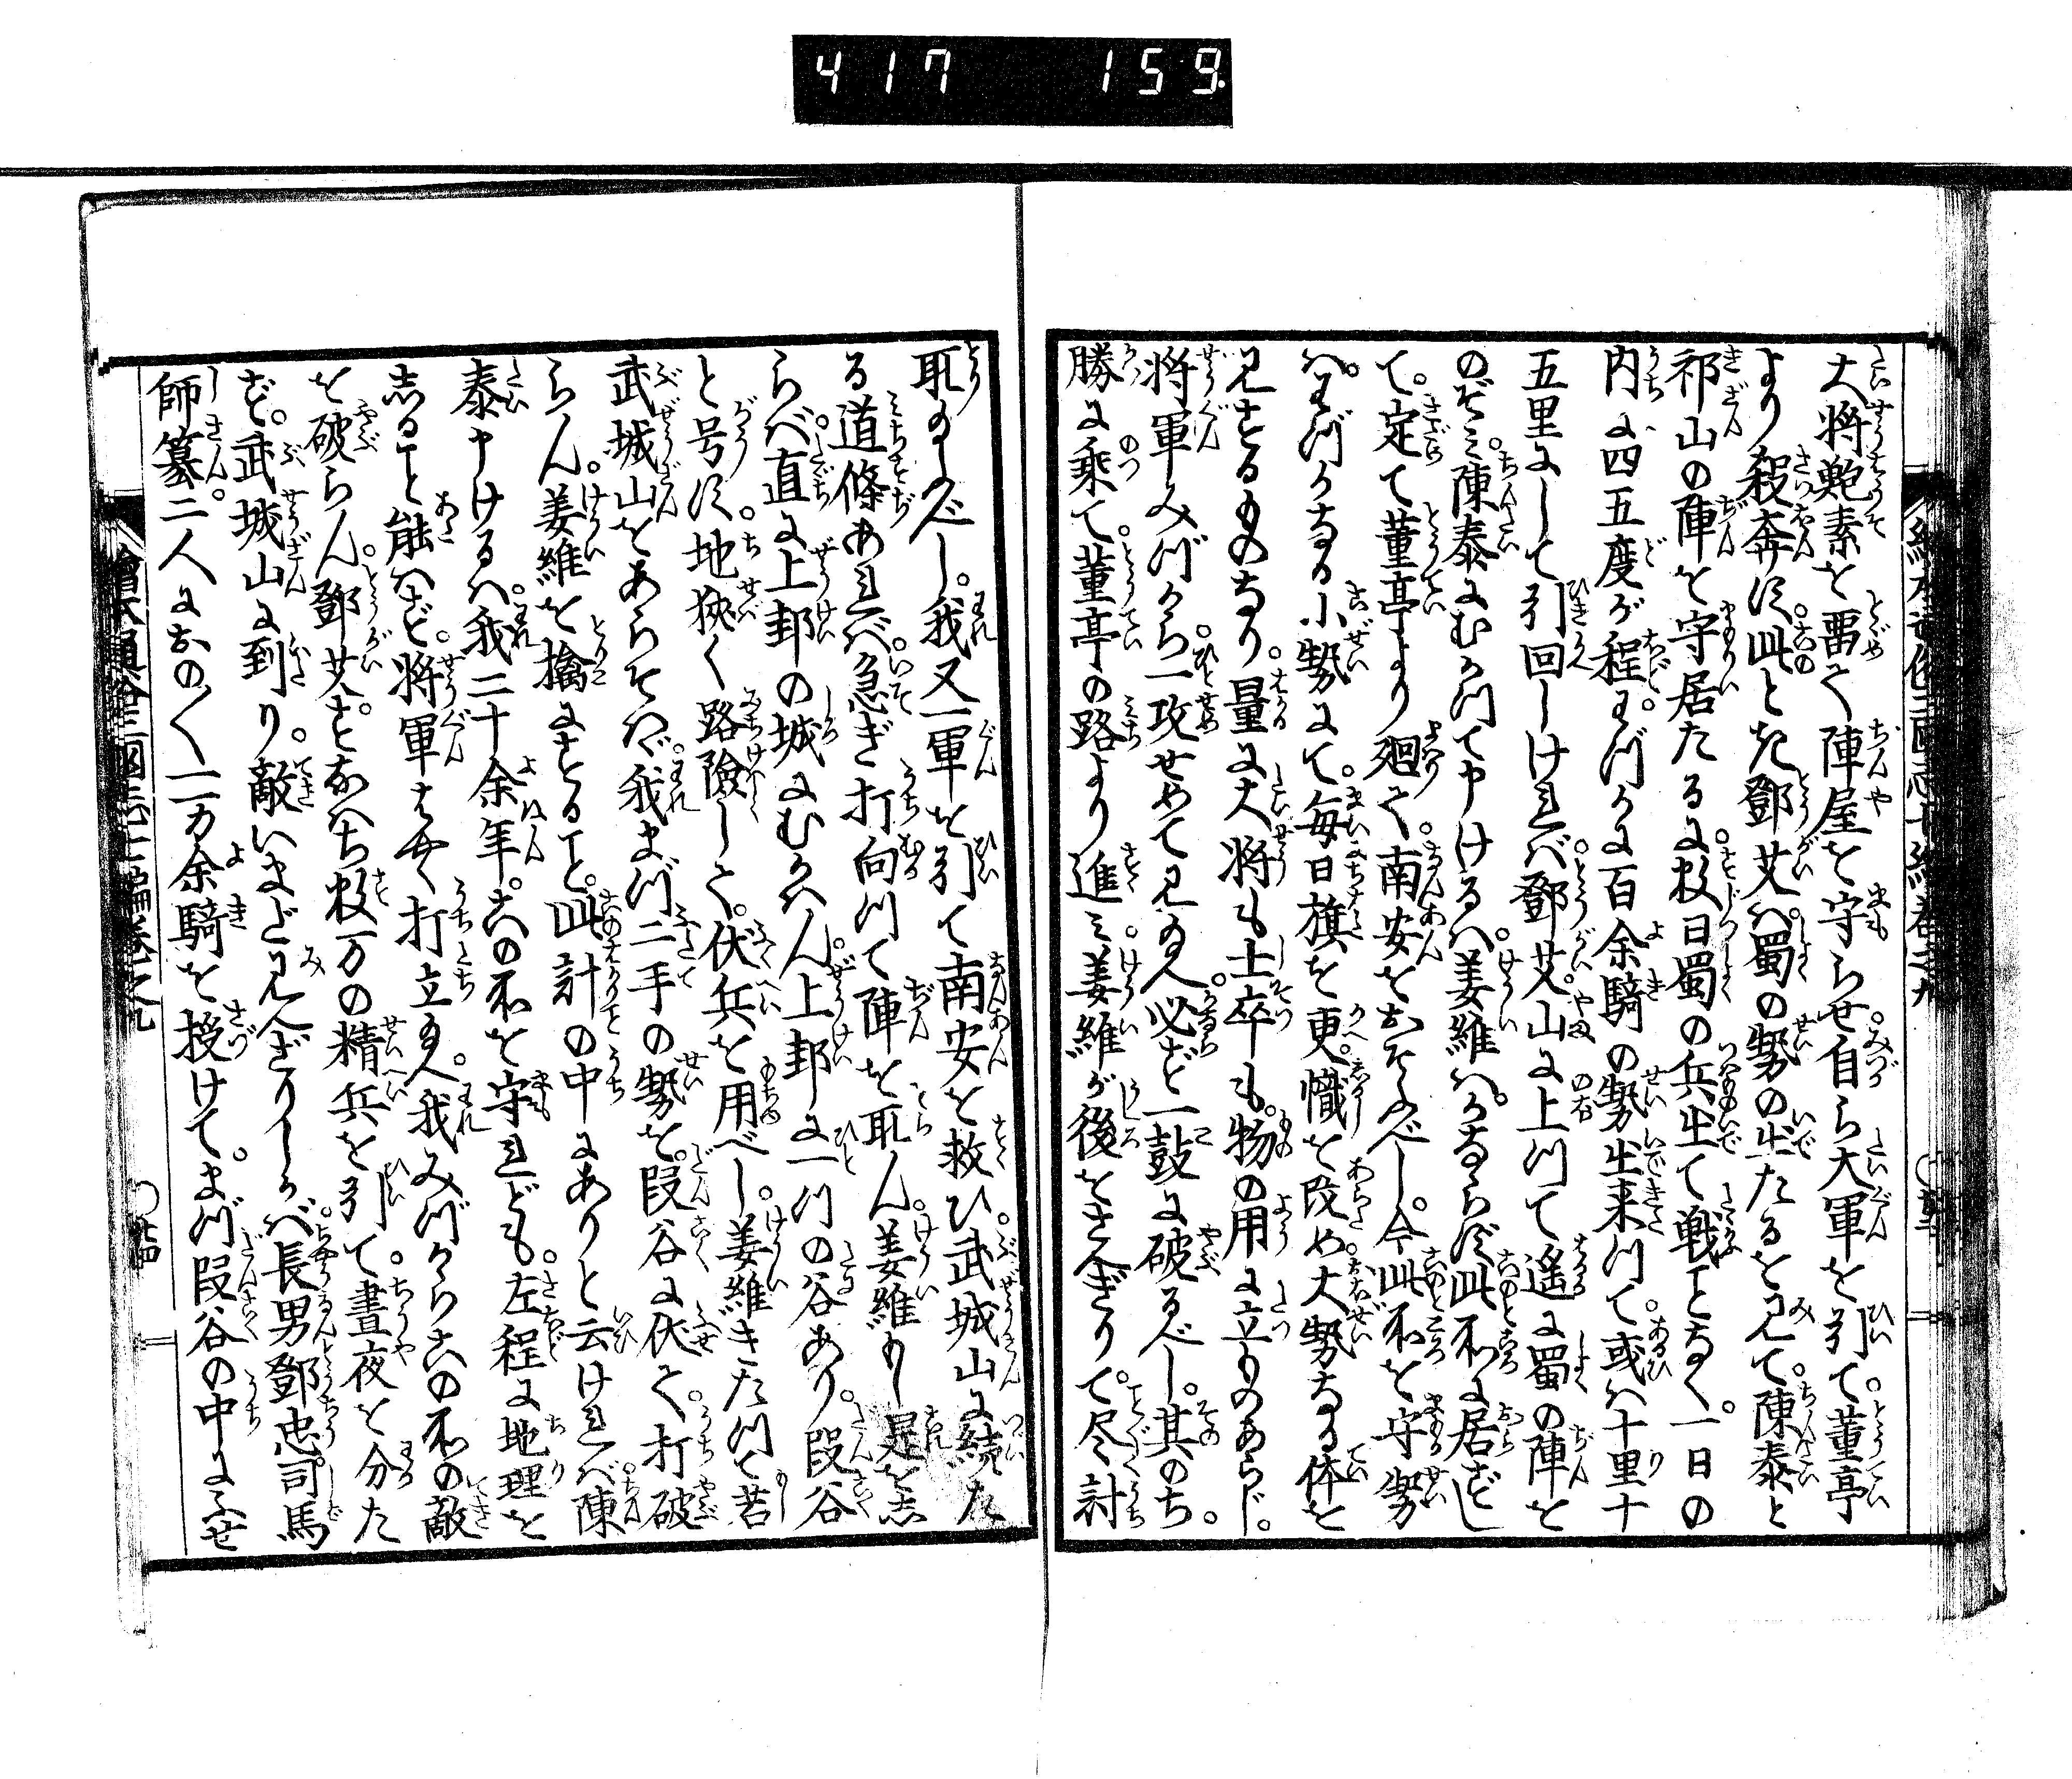 417 159.
大将鮑素を畱て陣屋を守らせ自ら大軍を引て。董亭
より殺奔す。此とき鄧艾ハ。蜀の勢の出たるを見て。陳泰と
祁山の陣を守居たるに。数日蜀の兵出て戦ことなく。一日の
内に四五度が程。わづかに百余騎の勢出来つて。或ハ十里十
五里にして引回しけれバ。鄧艾山に上つて遥に蜀の陣を
のぞミ。陳泰にむかつて申けるハ。姜維ハ。かならず此所に居ずし
て。定て董亭より廻て。南安をおそふべし。今此所を守勢
ハ。わづかなる小勢にて。毎日旗を更。幟を改め。大勢なる体を
見するものなり。量に大将も士卒も。物の用に立ものあらじ。
将軍みづから一攻せめて見給へ。必ど一鼓に破るべし。其のち。
勝に乗て。董亭の路より進ミ。姜維が後をさへぎりて。尽討
取給ふべし。我又一軍を引て南安を救ひ。武城山に続た
る道條あれバ。急ぎ打向つて陣を取ん。姜維もし是を志
らバ。直に上邽の城にむかハん。上邽に一つの谷あり。段谷
と号す。地狹く路險しく。伏兵を用べし。姜維きたつて若
武城山をあらそハゞ。我まづ二手の勢を。段谷に伏て。打破
らん。姜維を擒にすること。此計の中にありと云けれバ。陳
泰申けるハ。我二十余年。この所を守れども。左程に地理を
志ること能ハず。将軍はやく打立給へ。我みづからこの所の敵
を破らん。鄧艾。すなハち数万の精兵を引て。晝夜を分た
ず。武城山に到り。敵いまだ見へざりしかバ。長男鄧忠司馬
師纂。二人におの〱一万余騎を授けて。まづ段谷の中にふせ